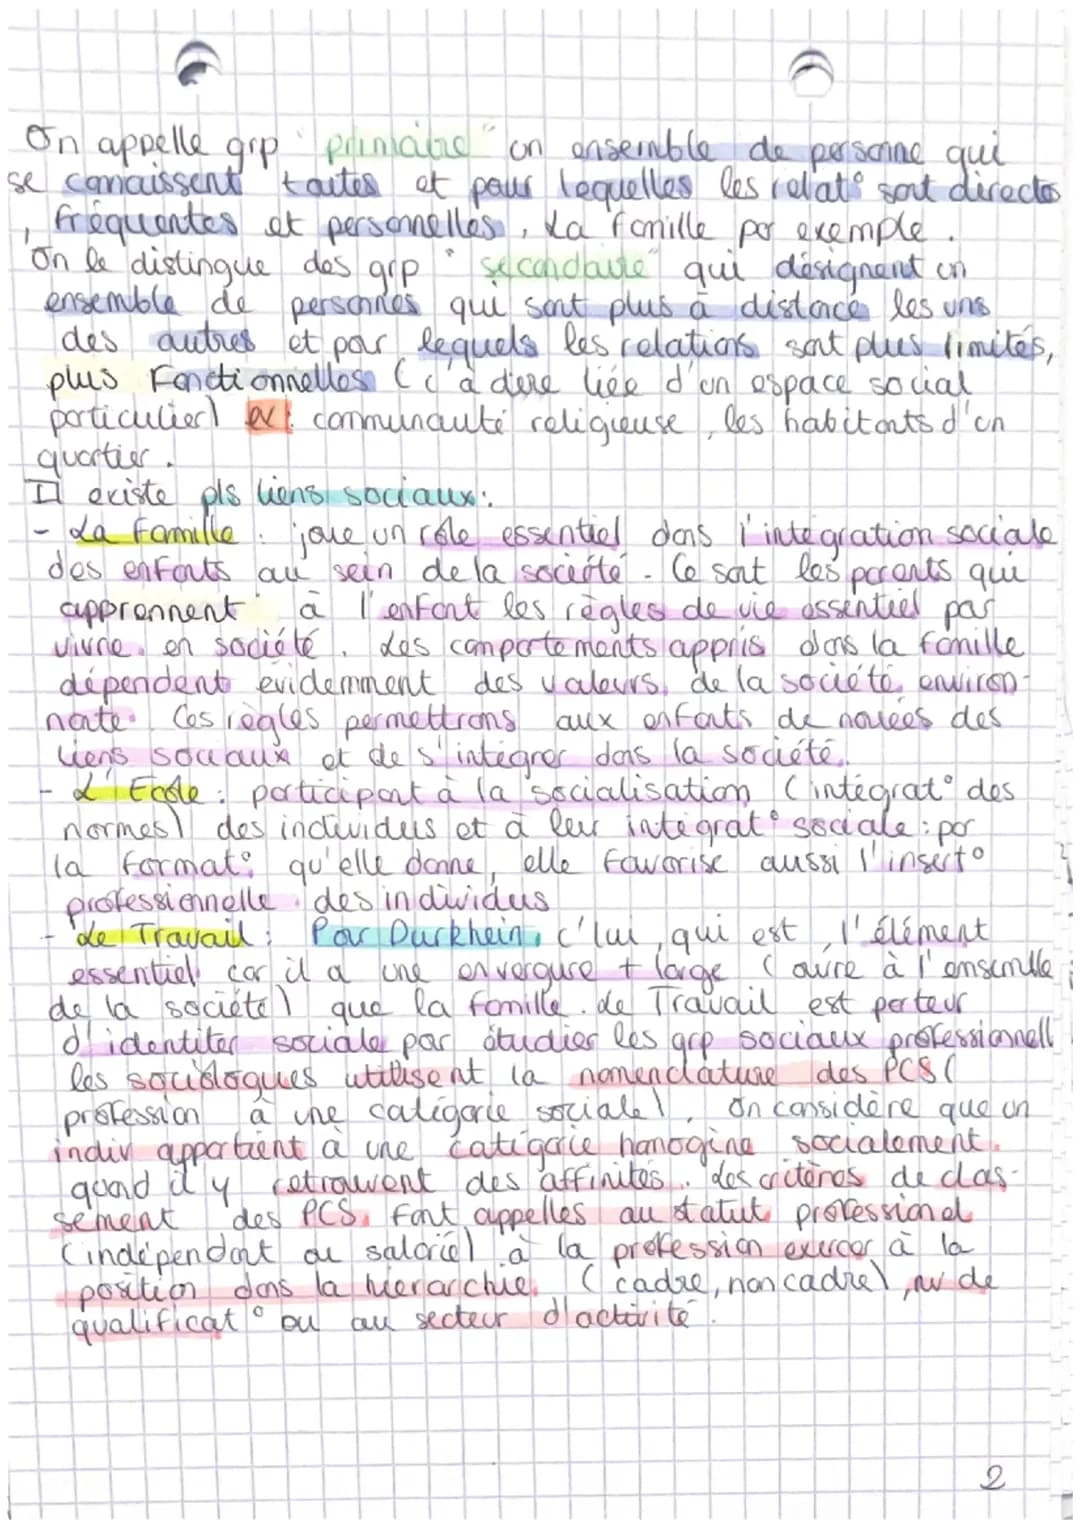 On appelle grp "primaire" un ensemble de personne qui
se conaissent toutes et pour lequelles les relat° sont directes
, fréquentes et personnelles, La famille par exemple.
On le distingue des grp "secondaire" qui désignent un
ensemble de personnes qui sont plus à distance les uns
des autres et pour lequels les relations sont plus limités,
plus Fonctionnelles (c'à dire liée d'un espace social
particulier) ex: communauté religieuse, les habitants d'un
quartier.
Il existe pls liens sociaux:
- La famille : joue un rôle essentiel dans l'intégration sociale
des enfants au sein de la société. Ce sont les parents qui
apprennent à l'enfant les règles de vie essentiel par
vivre en société. Les comportements appris dans la famille
dépendent évidemment des valeurs de la société environ-
nate. Ces règles permettrons aux enfants de nouées des
liens sociaux et de s'intégrer dans la société.
- L'Ecole : participent à la socialisation (intégrat° des
normes) des individus et à leur intégrat° sociale : par
la format° qu'elle donne, elle favorise aussi l'insert°
professionnelle des individus
- Le Travail : Pour Durkhein, c'lui qui est l'élément
essentiel car il a une envergure + large (ouvre à l'ensemble
de la société) que la famille. Le Travail est porteur
d'identiter sociale par étudier les grp sociaux professionnell
les sociologues utilisent la nomenclature des PCS (
profession à une catégorie sociale). On considère que un
indiv appartient à une catégorie homogène socialement
quand il y retrouvent des affinités. Les critères de clas-
sement des PCS font appelles au statut professionel
(indépendant ou salarié) à la profession exercer à la
position dans la hierarchie (cadre, non cadre), nv de
qualificat° ou au secteur d'activité.
2